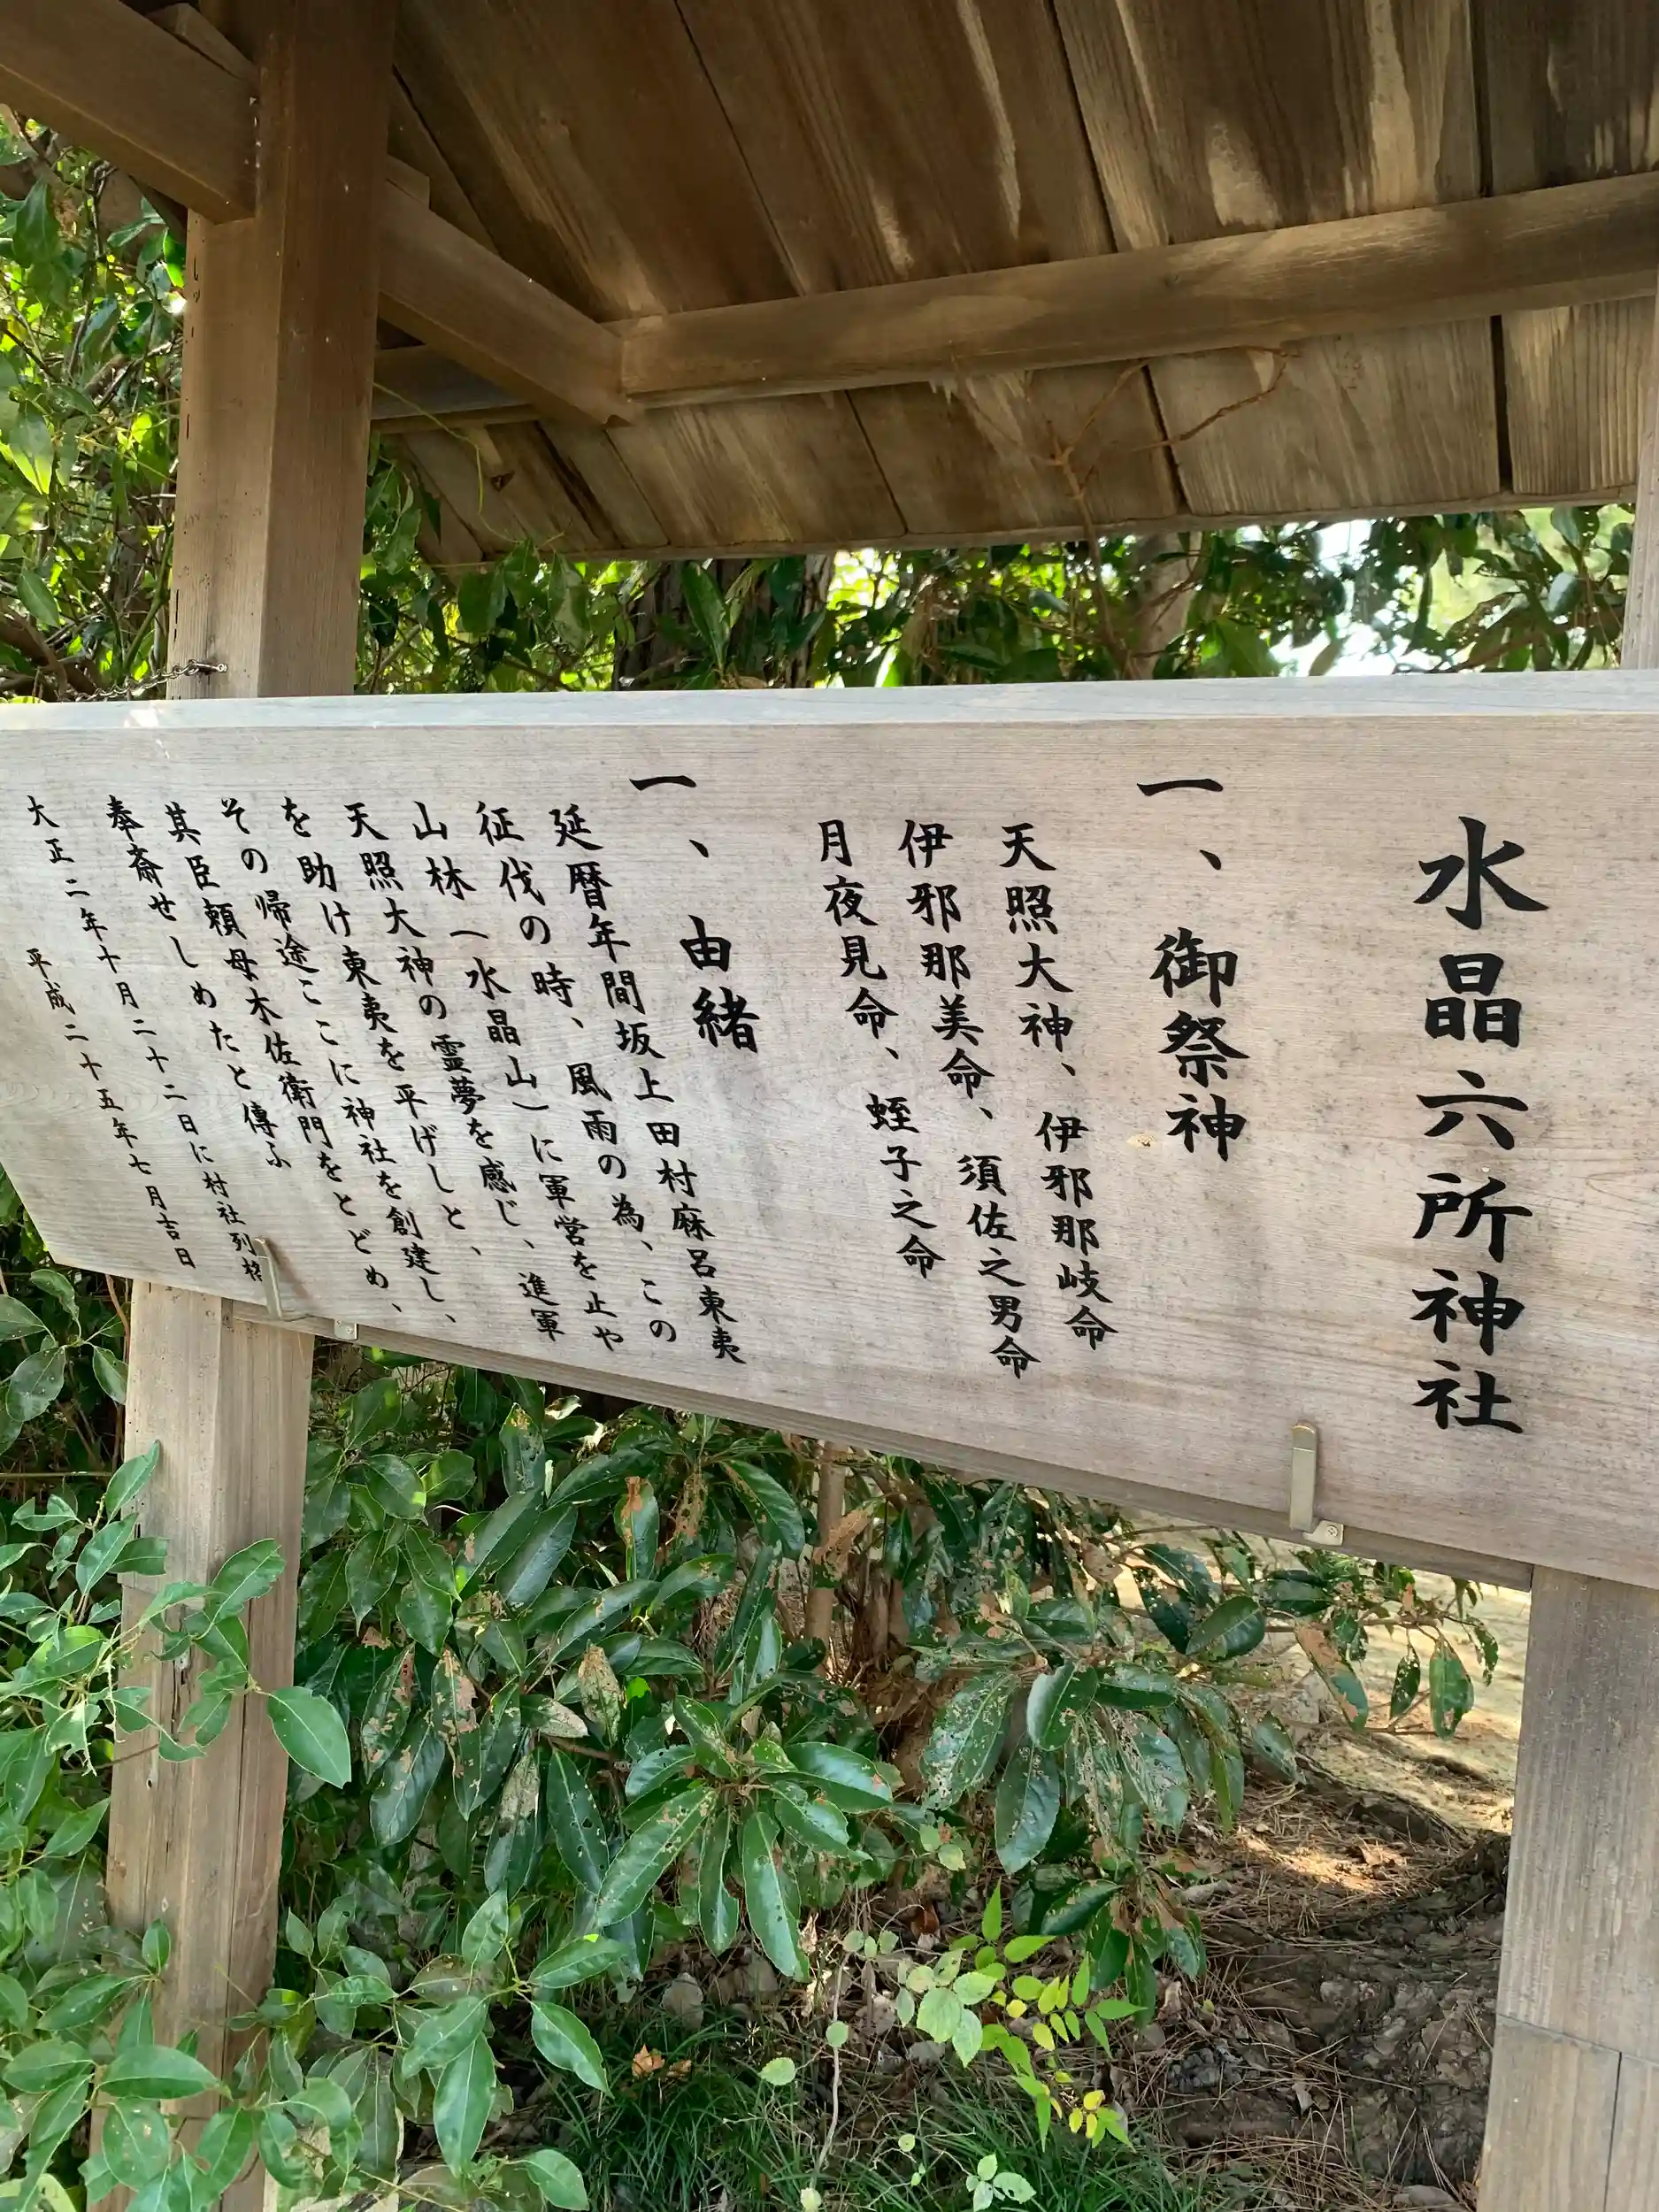 水晶六所神社
一、御祭神
天照大神、伊邪那岐命
伊邪那美命、須佐之男命
月夜見命、蛭子之命
一、由緒
延暦年間坂上田村麻呂東夷
征伐の時、風雨の為、この
山林(水晶山)に軍営を止や
天照大神の霊夢を感じ、進軍
を助け東夷を平げしと、
その帰途ここに神社を創建し、
其臣頼母木佐衛門をとどめ、
奉斎せしめたと傳ふ
大正二年十月二十二日に村社列格
平成二十五年七月吉日